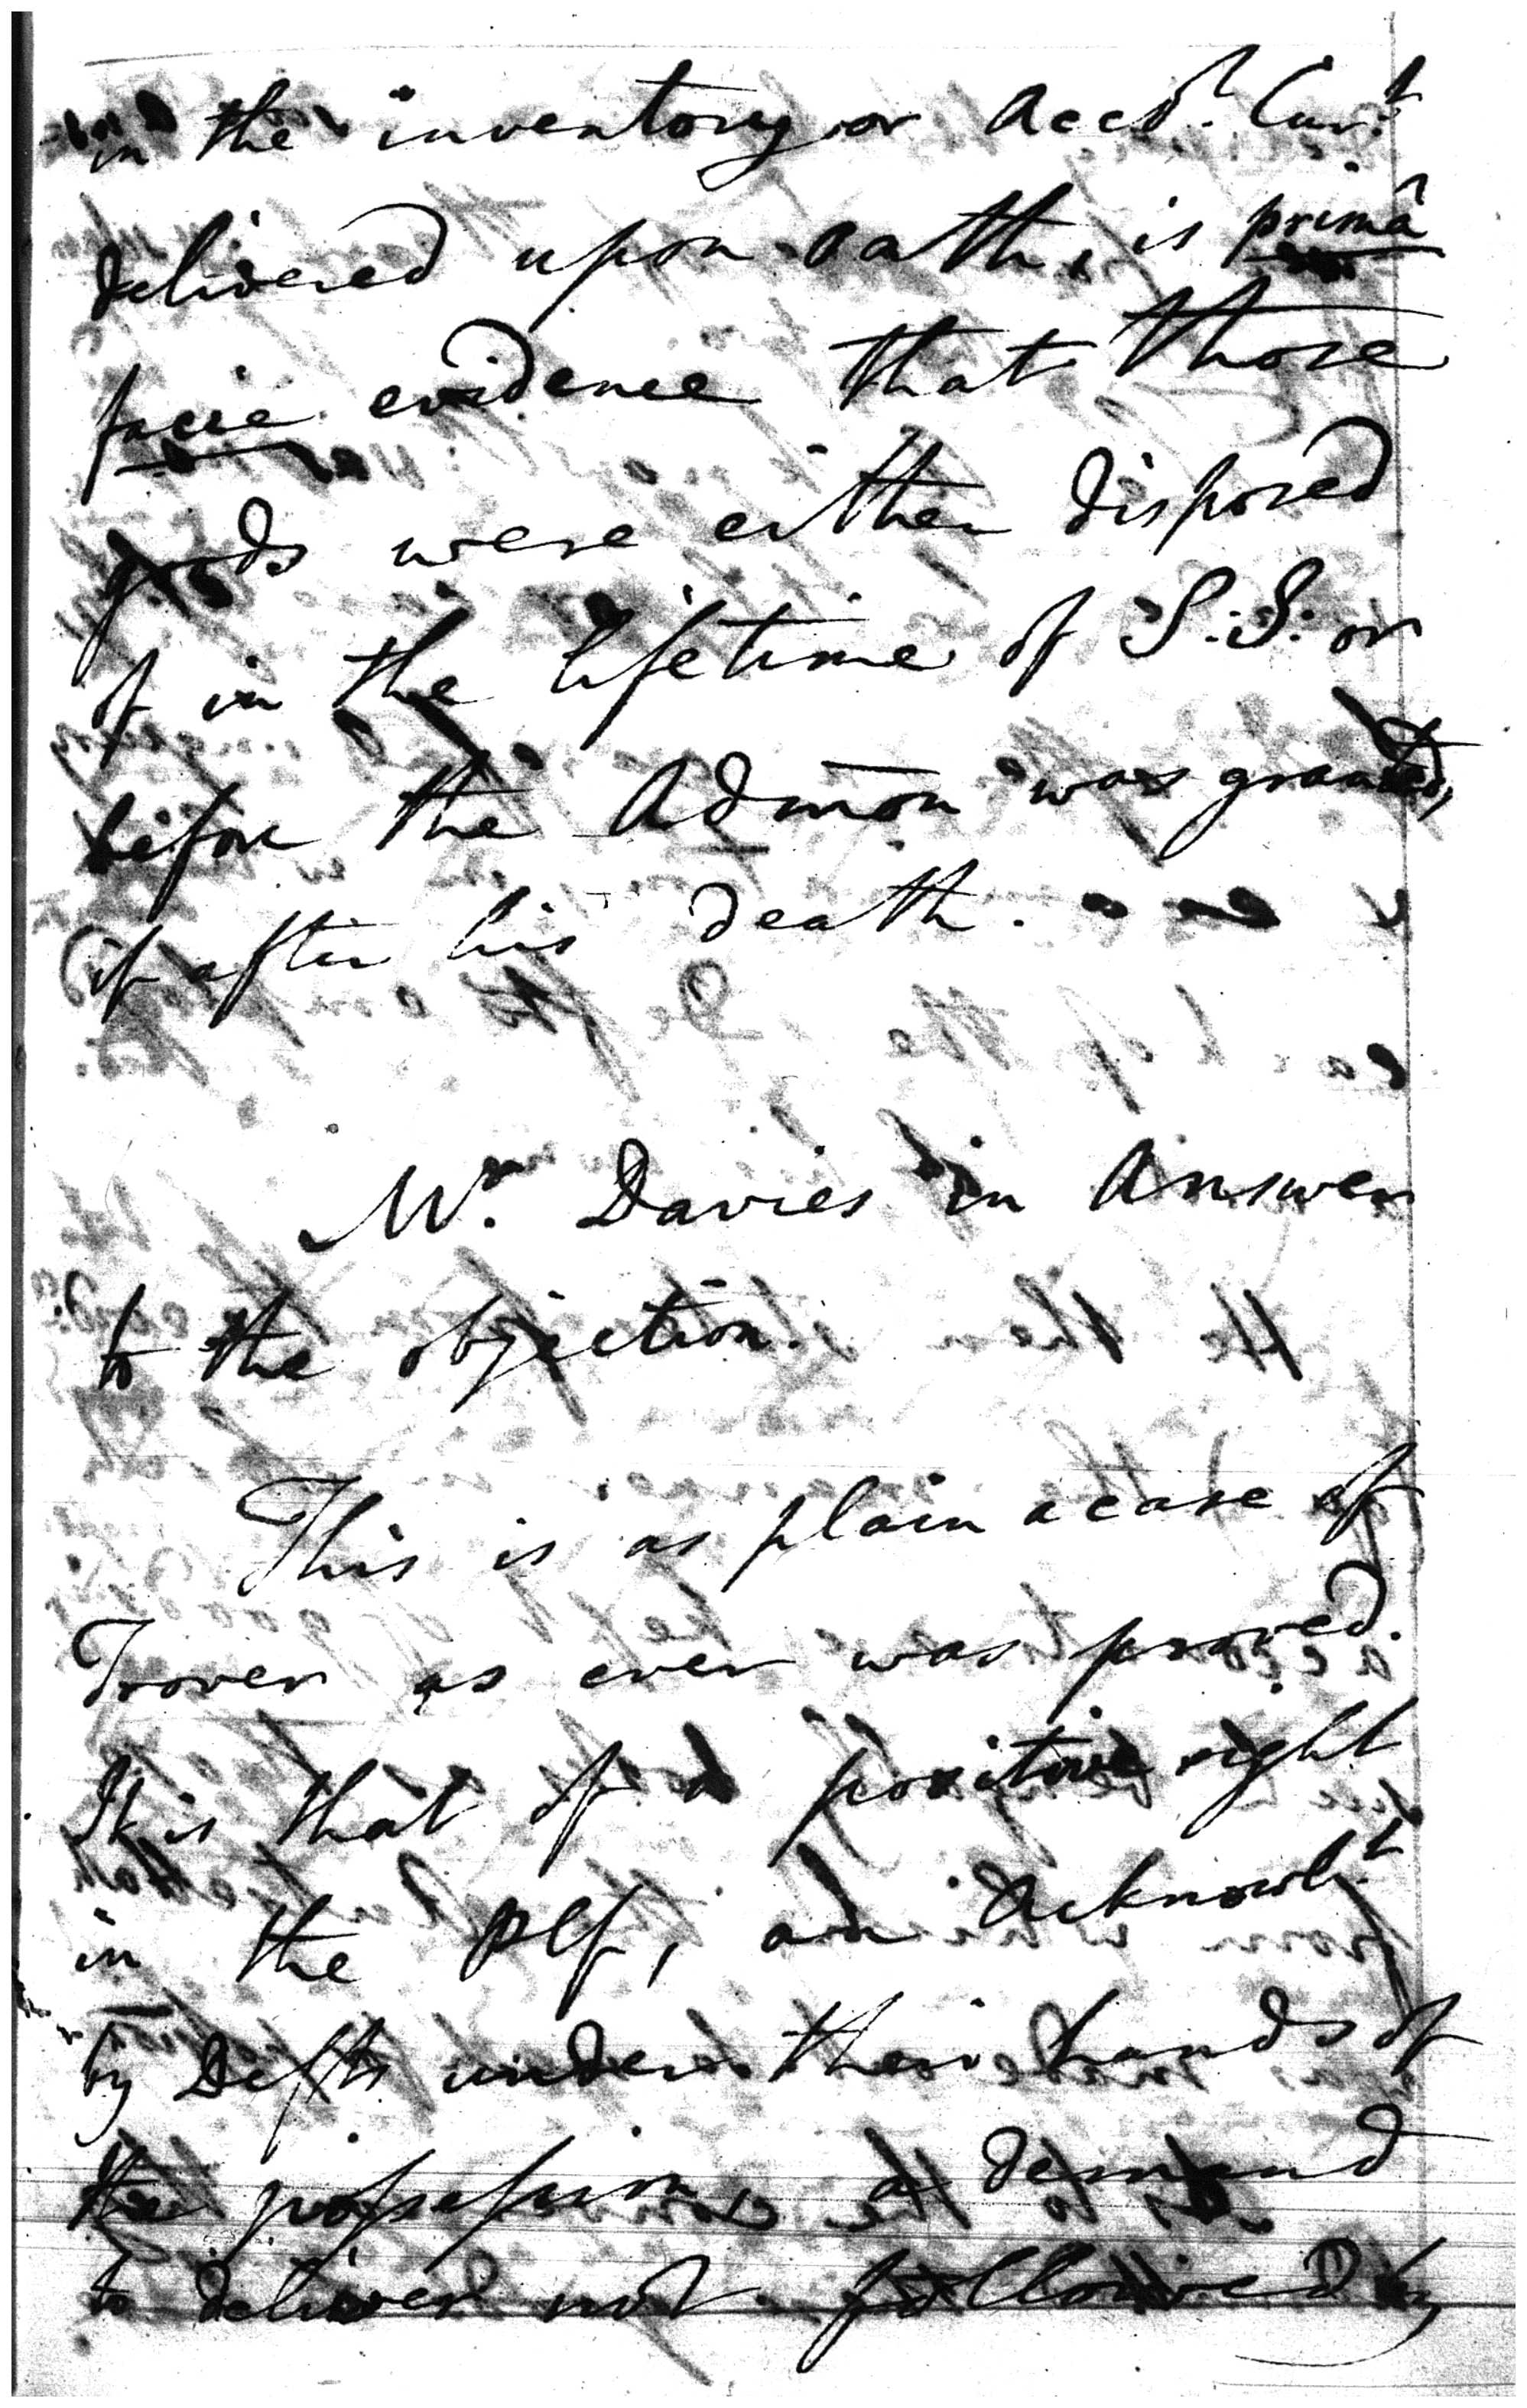 in the inventory or Acco.t Cur.t
delivered upon oath, is primâ
facie evidence that those
goods were either disposed
of in the lifetime of S.S. or
before the Admōn was granted,
if after his death.
Mr. Davies in Answer
to the objection.
This is as plain a case of
Trover as ever was proved.
It is that of a positive right
in the Plf, an Acknowl.t
by Defts under their hands of
the possession, a demand
to deliver not followed by